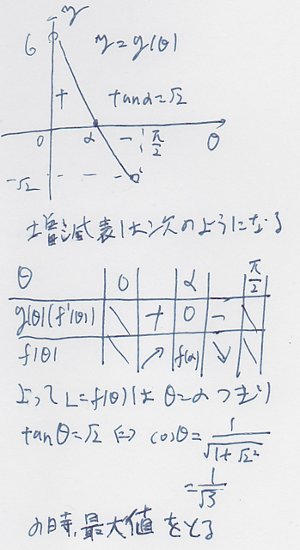 y
6
y=g(θ)
+
tanα=√2
0
α
-
π/2
θ
-√2
増減表は次のようになる
θ | 0 | | α | | π/2
g(θ)(f'(θ)) | \ | + | 0 | - | \
f(θ) | \ | ↗ | f(α) | ↘ | \
よってL=f(θ)は θ=α つまり
tanθ=√2 ⇔ cosθ= 1/√(1+√2²)
=1/√3
の時、最大値をとる